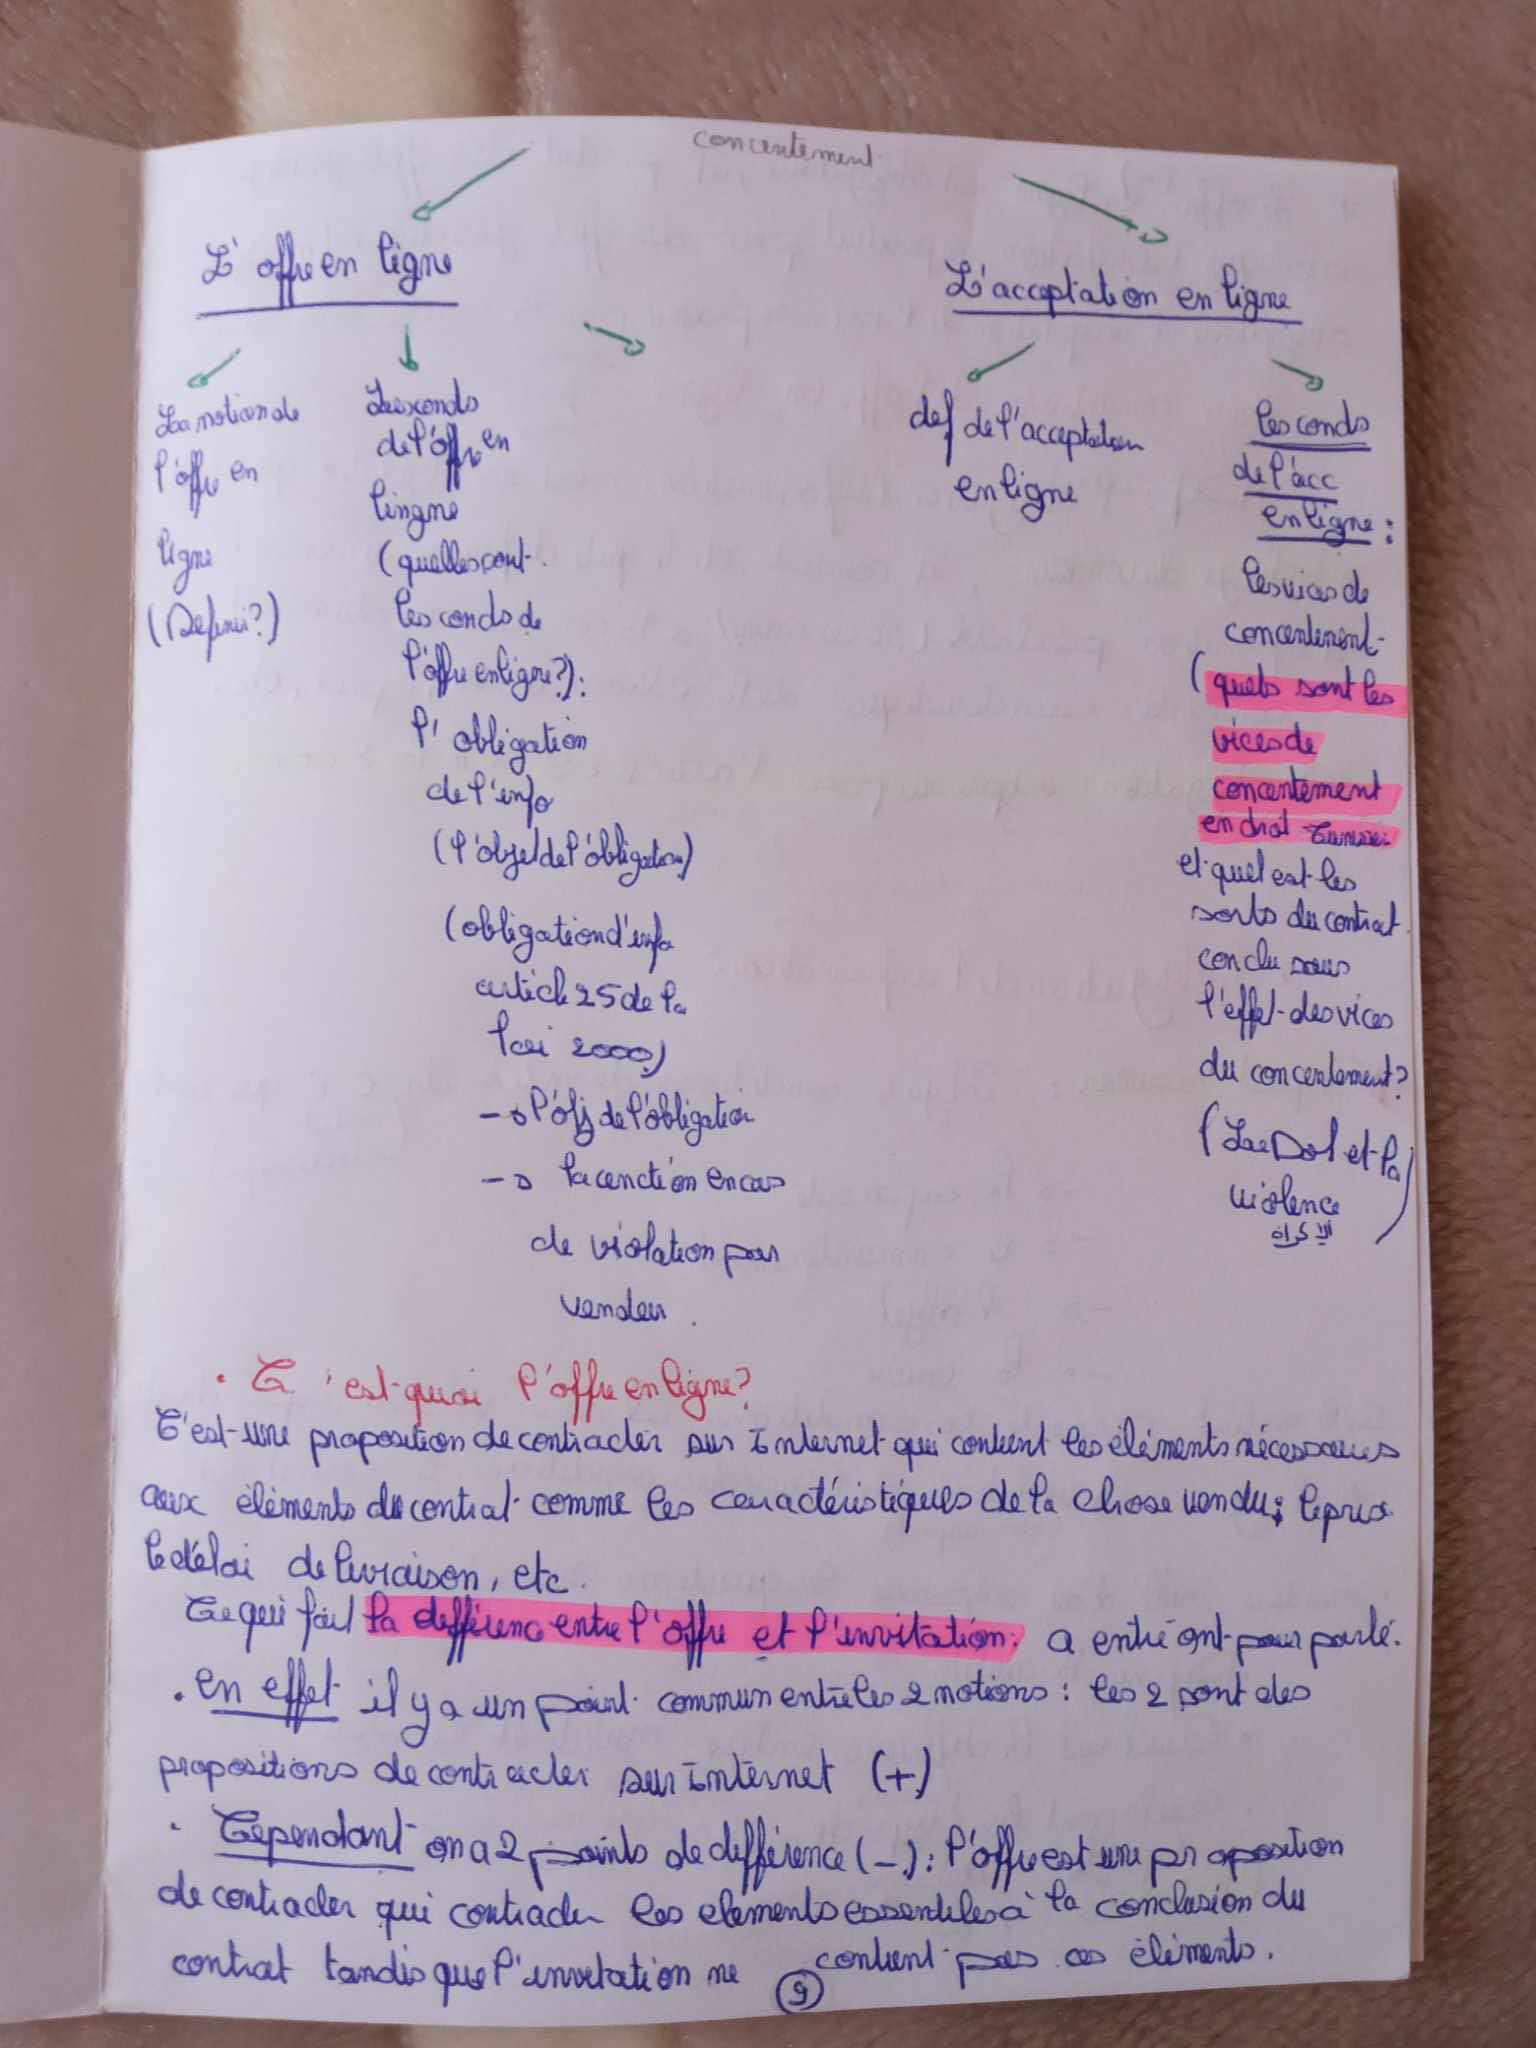 concentement
L'offre en ligne
L'acceptation en ligne
La notion de
l'offre en
ligne
(Definir?)
Les conds
de l'offre en
lingne
(quelles sont
les conds de
l'offre en ligne?):
l'obligation
de l'info
(l'objet de l'obligation)
(obligation d'info
article 25 de la
loi 2000)
→ l'obj de l'obligation
→ la canction en cas
de violation par
vendeur.
def de l'acceptation
en ligne
les conds
de l'acc
en ligne:
les vices de
concentement
(quels sont les
vices de
concentement
en droit
et quel est les
sorts du contrat
conclu sous
l'effet des vices
du concentement?
(Le Dol et la
violence
الإكراه
• C'est quoi l'offre en ligne?
C'est une proposition de contracter sur Internet qui contient les éléments nécessaires
aux éléments du contrat comme les caractéristiques de la chose vendu; le prix
le délai de livraison, etc.
Ce qui fait la defférence entre l'offre et l'invitation: a entré ont pour parlé.
• en effet il y a un point commun entre les 2 notions: les 2 sont des
propositions de contracter sur Internet (+)
• Cependant on a 2 points de différence (-): l'offre est une proposition
de contracter qui contracter les elements essentieles à la conclusion du
contrat tandis que l'invitation ne contient pas ces éléments.
9